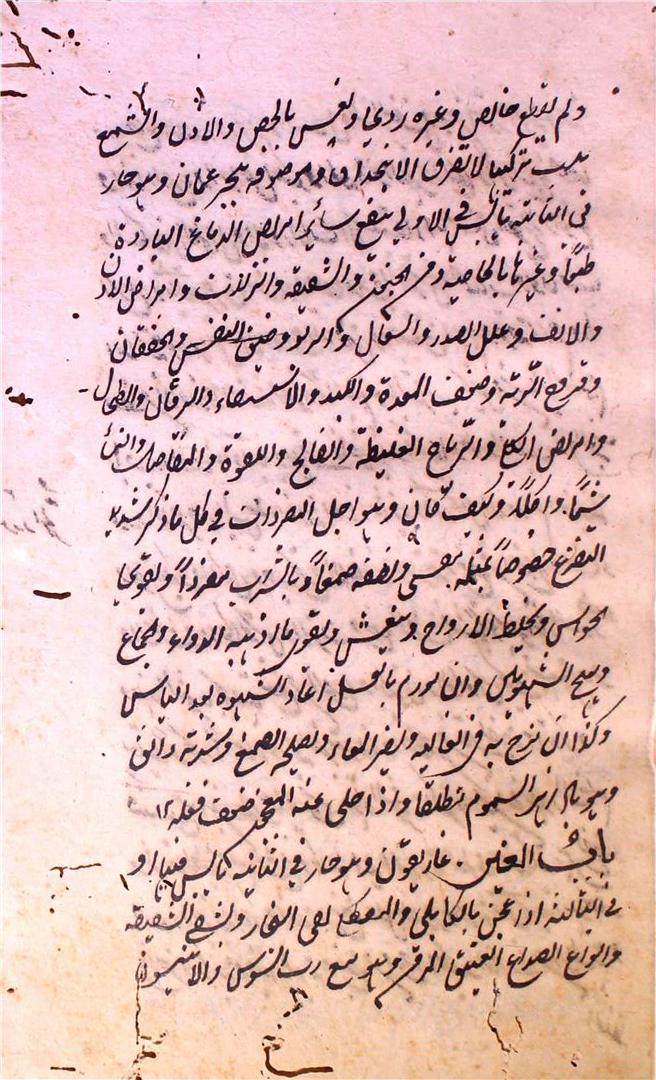 ولم يقطع خالص وغيره ردي ويغش بالجص والادن والشمع
بحيث تركيبا لا تفرق الا بتجداق وموضوفه ببحر عمان وهو حار
في الثانية يابس في الاولى ينفع سائر امراض الدماغ الباردة
طبعا وغيرها بالخاصية ومن الجنون والشقيقة والنزلات وامراض الاذن
والانف وعلل الصدر والسعال والربو وضيق النفس والخفقان
وقروح الرئة وضعف المعدة والكبد والاستسقاء واليرقان والطحال
وامراض الكلا والرياح الغليظة والفالج واللقوة والمفاصل والنسا
شما واكلا وكيف كان وهو اجل المفردات في كل ما ذكر شديد
التفريح خصوصا بمثله ونصفه صمغا وبالشراب مفردا ويقوي
الحواس ويحفظ الارواح وينعش ويقوي ما اذهبه الدواء والجماع
ويهيج الشهوتين وان لوزم بالعسل اعاد الشهوة بعد الياس
وكذا ان مزج به في الغالية ويضر المعاء ويصلحه الصمغ وشربته دانق
وهو بادزهر السموم مطلقا واذا خلى عنه المعجون ضعف فعله ١٢
باب الغين . غاريقون وهو حار في الثانية يابس فيها او
في الثالثة اذا عجن بالكابلي والمصطكى نقى البخار ويشفي الشقيقة
وانواع الصداع العتيق المزمن وهو مع رب السوس والانيسون